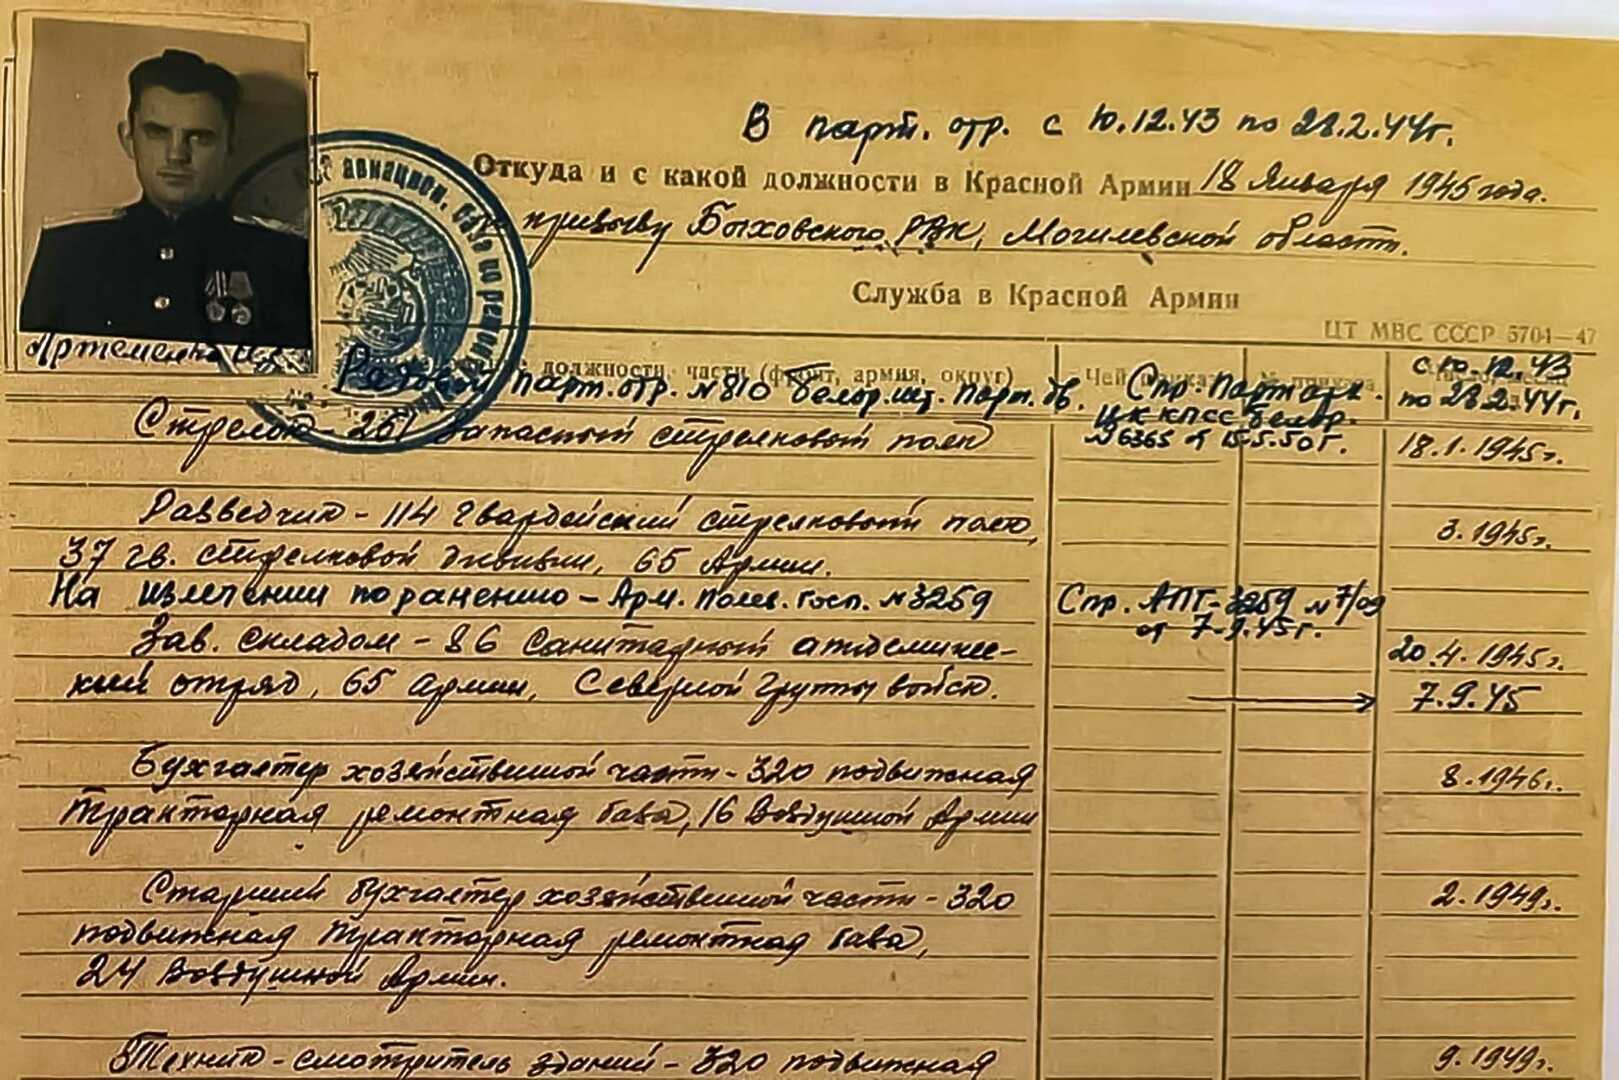 В парт. отр. с 10.12.43 по 28.2.44г.
Откуда и с какой должности в Красной Армии 18 Января 1945 года.
призыву Быховского РВК, Могилевской области.
авиацион. база по ремонт
Служба в Красной Армии
ЦТ МВС СССР 5704—47
Артеменко
должности, части (фронт, армия, округ) Чей приказ № приказа
Рядовой парт. отр. №810 Белор. шт. парт. дв. Спр. Партарх. с 10.12.43
ЦК КПСС Белор. по 28.2.44г.
№6365 от 15.5.50г.
Стрелок - 261 Запасной стрелковый полк 18.1.1945г.
Разведчик - 114 гвардейский стрелковый полк, 3.1945г.
37 гв. стрелковой дивизии, 65 Армии.
На излечении по ранению - Арм. полев. госп. №3259 Спр. АПГ-3259 №7/09
от 7-9.45г.
Зав. складом - 86 Санитарный эпидемичес- 20.4.1945г.
кий отряд, 65 Армии, Северной Группы войск. 7.9.45
Бухгалтер хозяйственной части - 320 подвижная 8.1946г.
тракторная ремонтная база, 16 Воздушной Армии
Старший бухгалтер хозяйственной части - 320 2.1949г.
подвижная тракторная ремонтная база,
24 Воздушной Армии.
Техник-смотритель зданий - 320 подвижная 9.1949г.